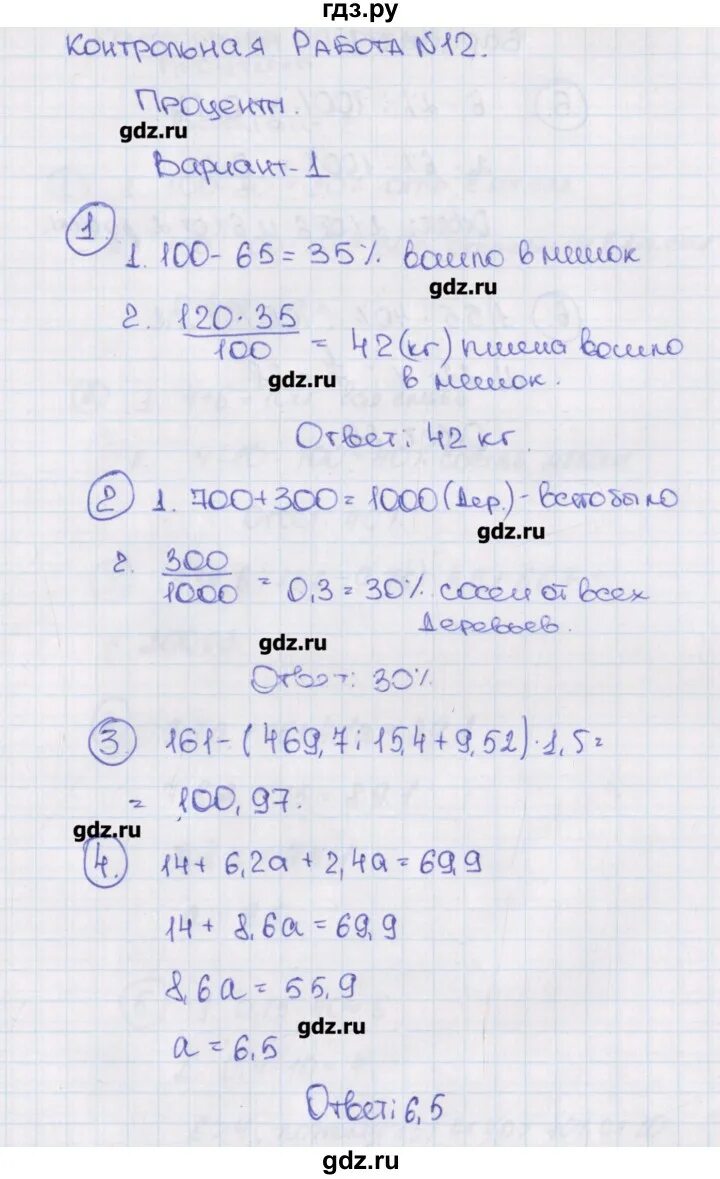 гдз.ру
Контрольная Работа №12.
Проценты.
gdz.ru
Вариант-1
1
1. 100 - 65 = 35% вошло в мешок
gdz.ru
2. 120·35/100 = 42 (кг) пшена вошло
в мешок.
gdz.ru
Ответ: 42 кг.
2 1. 700+300=1000 (Дер.) - всего было
gdz.ru
2. 300/1000 = 0,3 = 30% сосен от всех
Деревьев.
gdz.ru
Ответ: 30%.
3 161-(469,7:15,4+9,52)·1,5=
= 100,97.
gdz.ru
4. 14+ 6,2а + 2,4а = 69,9
14+ 8,6а = 69,9
8,6а = 55,9
gdz.ru
а = 6,5
Ответ: 6,5
gdz.ru